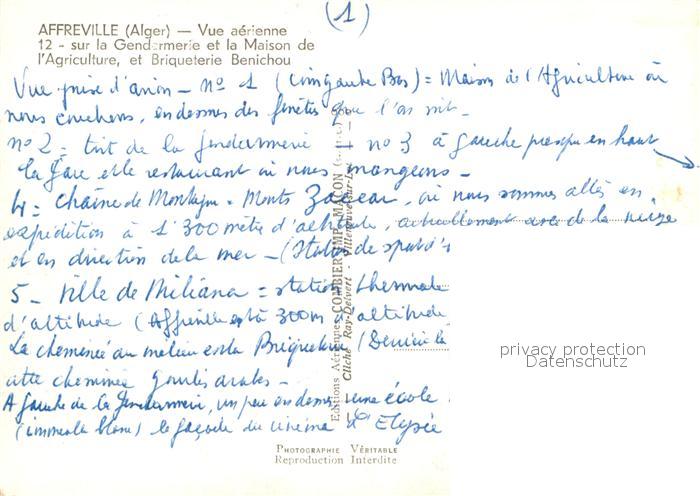 (1)
AFFREVILLE (Alger) — Vue aérienne
12 - sur la Gendarmerie et la Maison de
l'Agriculture, et Briqueterie Benichou
Vue prise d'avion - n° 1 (coin gauche Bas) = Maison de l'Agriculture où
nous couchons, en dessous des fenêtes que l'on voit -
n° 2 = toit de la gendarmerie - n° 3 à gauche presque en haut
la gare et le restaurant où nous mangeons -
4 = Chaîne de Montagne = Monts Zaccar, où nous sommes allés en
expédition à 1 300 mètre d'altitude, actuellement avec de la neige
et en direction de la mer - (Station de sports
5 - Ville de Miliana = station thermale
d'altitude (Affreville est à 300m d'altitude
La cheminée au milieu est la Briqueterie (Derrière la
cheminée arabes -
A gauche de la Gendarmerie, un peu en dessous une école
(immeuble blanc) la façade du cinéma l'Elysée
Editions Aériennes COMBIER IMP. MACON
Cliché Ray-Delvert
PHOTOGRAPHIE VÉRITABLE
Reproduction Interdite
privacy protection
Datenschutz